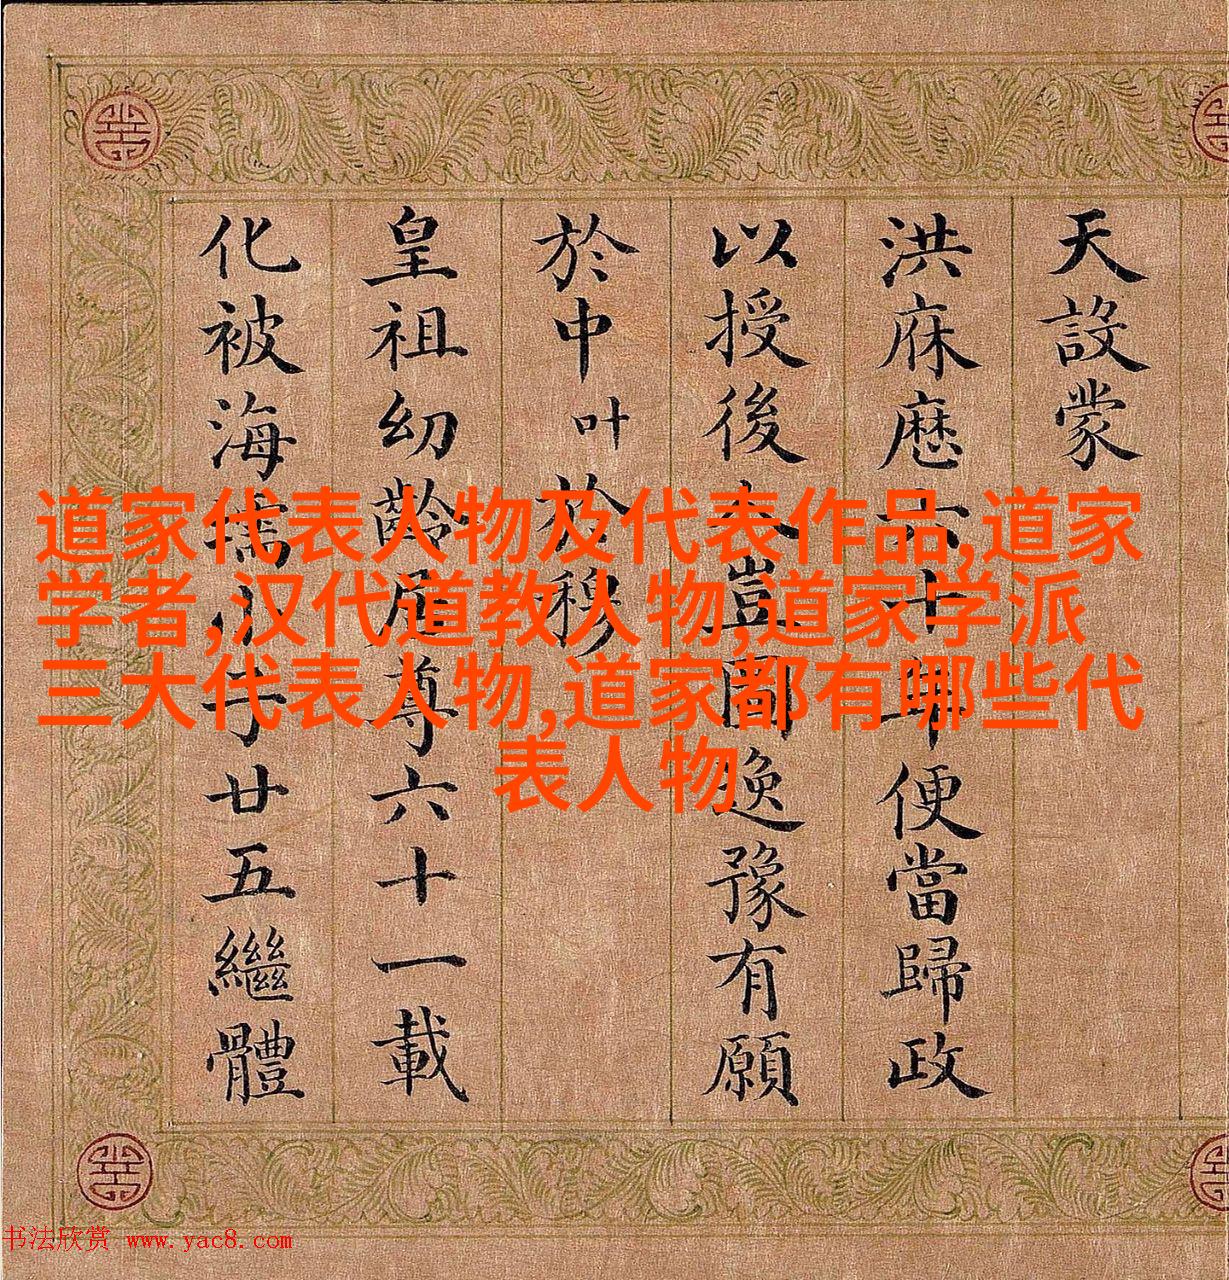 道家代表人物及代表作品,道家
学者,汉代道教人物,道家学派
三大代表人物,道家都有哪些代
表人物
天設蒙
洪庥歷六十年便當歸政
以授後人豈圖逸豫有願
於中叶於穆
皇祖幼齡居尊六十一載
化被海小子廿五繼體
书法欣赏 www.yac8.com